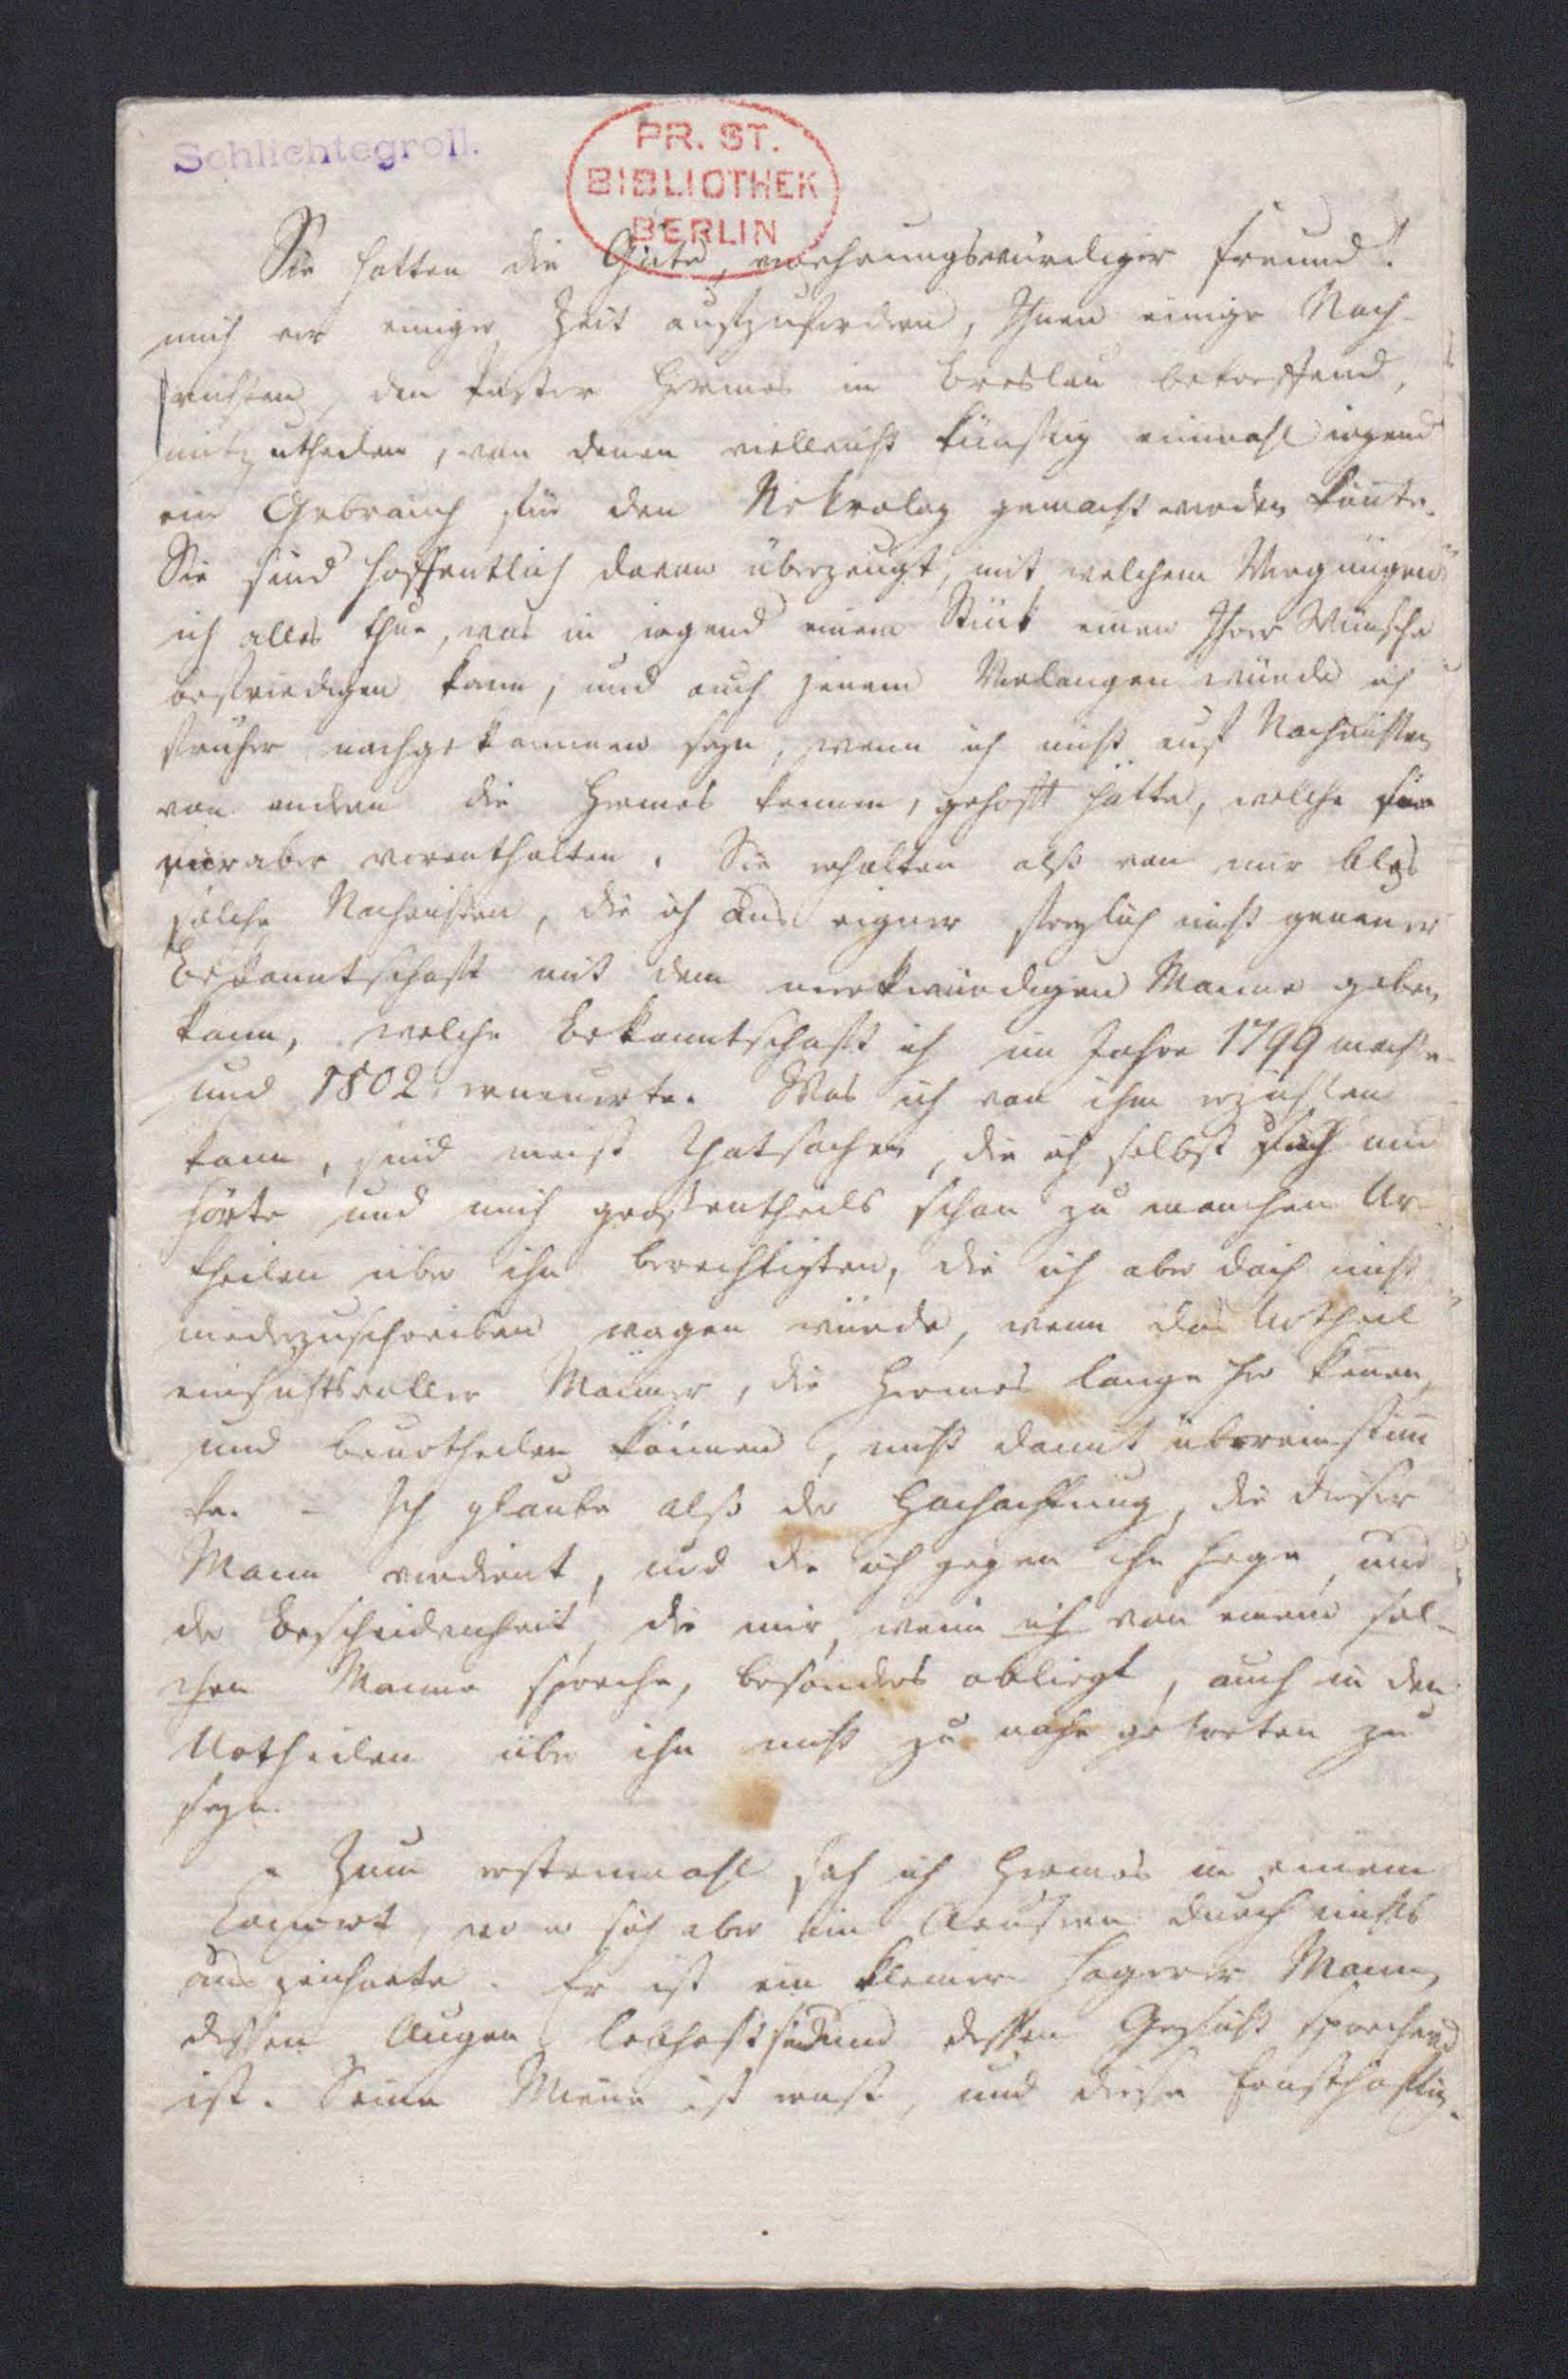 Schlichtegroll.
PR. ST.
BIBLIOTHEK
BERLIN
Sie hatten die Güte, verehrungswürdiger Freund!
mich vor einiger Zeit aufzufordern, Ihnen einige Nach-
richten, den Pastor Hermes in Breslau betreffend,
mitzutheilen, von denen vielleicht künftig einmahl irgend
ein Gebrauch für den Nekrolog gemacht werden könte.
Sie sind hoffentlich davon überzeugt, mit welchem Vergnügen
ich alles thue, was in irgend einem Stück einen Ihrer Wünsche
befriedigen kann, und auch jenem Verlangen würde ich
früher nachgekommen seyn, wenn ich nicht auf Nachrichten
von andern die Hermes kennen, gehofft hätte, welche sie
mir aber vorenthalten. Sie erhalten also von mir blos
solche Nachrichten, die ich aus eigner freylich nicht genauer
Bekanntschaft mit dem merkwürdigen Manne geben
kann, welche Bekanntschaft ich im Jahre 1799 machte
und 1802 erneuerte. Was ich von ihm erzählen
kann, sind meist Thatsachen, die ich selbst sah und
hörte und mich grossentheils schon zu manchen Ur-
theilen über ihn berechtigten, die ich aber doch nicht
niederzuschreiben wagen würde, wenn das Urtheil
einsichtsvoller Männer, die Hermes lange her kenen,
und beurtheilen können, nicht damit übereinstim
te. - Ich glaube also der Hochachtung, die dieser
Mann verdient, und die ich gegen ihn hege, und
der Bescheidenheit, die mir, wenn ich von einem sol-
chen Manne spreche, besonders obliegt, auch in den
Urtheilen über ihn nicht zu nahe getreten zu
seyn.
Zum erstenmahl sah ich Hermes in einem
Concert, wo er sich aber im Aeussern durch nichts
auszeichnete. Er ist ein kleiner hagerer Mann,
dessen Augen lebhaft sind und dessen Gesicht sprechend
ist. Seine Miene ist ernst, und diese Ernsthaftig-